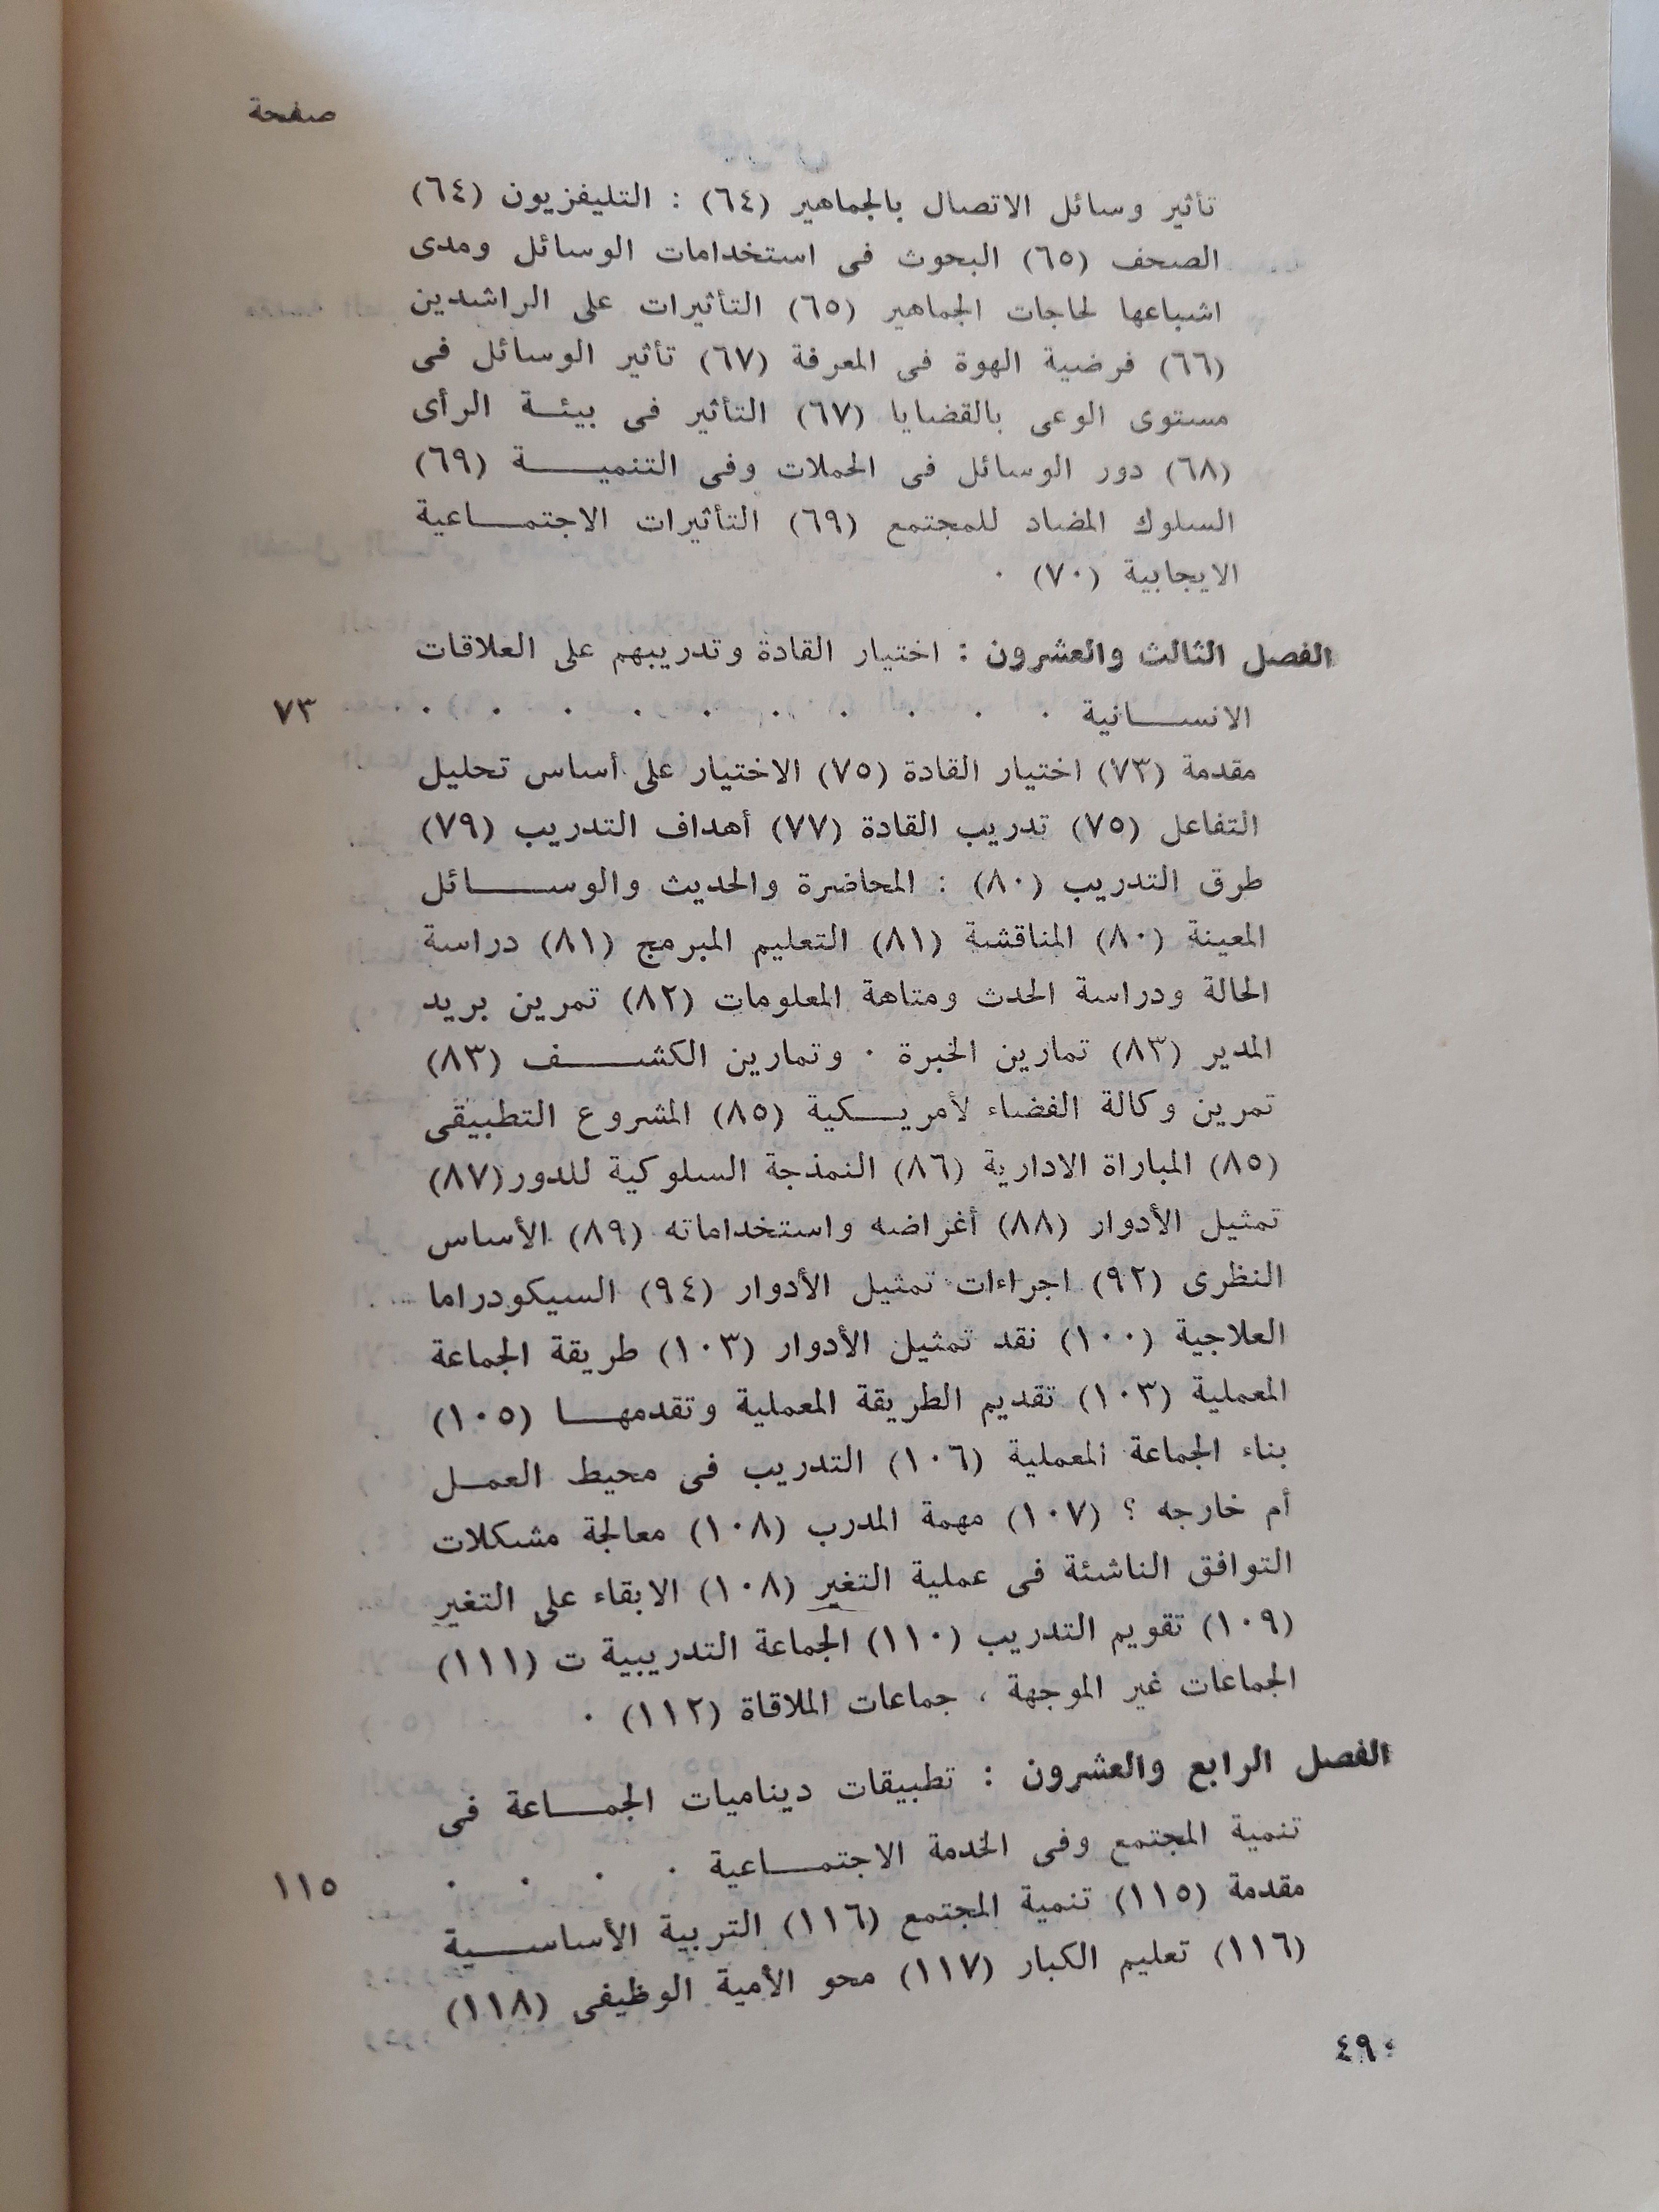 صفحة
تأثير وسائل الاتصال بالجماهير (٦٤) : التليفزيون (٦٤)
الصحف (٦٥) البحوث فى استخدامات الوسائل ومدى
اشباعها لحاجات الجماهير (٦٥) التأثيرات على الراشدين
(٦٦) فرضية الهوة فى المعرفة (٦٧) تأثير الوسائل فى
مستوى الوعى بالقضايا (٦٧) التأثير فى بيئة الرأى
(٦٨) دور الوسائل فى الحملات وفى التنمية (٦٩)
السلوك المضاد للمجتمع (٦٩) التأثيرات الاجتماعية
الايجابية (٧٠) ٠
الفصل الثالث والعشرون : اختيار القادة وتدريبهم على العلاقات
الانسانية ٠ ٠ ٠ ٠ ٠ ٠ ٠ ٠ ٠ ٠ ٧٣
مقدمة (٧٣) اختيار القادة (٧٥) الاختيار على أساس تحليل
التفاعل (٧٥) تدريب القادة (٧٧) أهداف التدريب (٧٩)
طرق التدريب (٨٠) : المحاضرة والحديث والوسائل
المعينة (٨٠) المناقشة (٨١) التعليم المبرمج (٨١) دراسة
الحالة ودراسة الحدث ومتاهة المعلومات (٨٢) تمرين بريد
المدير (٨٣) تمارين الخبرة ٠ وتمارين الكشف (٨٣)
تمرين وكالة الفضاء لأمريكية (٨٥) المشروع التطبيقى
(٨٥) المباراة الادارية (٨٦) النمذجة السلوكية للدور (٨٧)
تمثيل الأدوار (٨٨) أغراضه واستخداماته (٨٩) الأساس
النظرى (٩٢) اجراءات تمثيل الأدوار (٩٤) السيكودراما
العلاجية (١٠٠) نقد تمثيل الأدوار (١٠٣) طريقة الجماعة
المعملية (١٠٣) تقديم الطريقة المعملية وتقدمها (١٠٥)
بناء الجماعة المعملية (١٠٦) التدريب فى محيط العمل
أم خارجه ؟ (١٠٧) مهمة المدرب (١٠٨) معالجة مشكلات
التوافق الناشئة فى عملية التغير (١٠٨) الابقاء على التغير
(١٠٩) تقويم التدريب (١١٠) الجماعة التدريبية ت (١١١)
الجماعات غير الموجهة ، جماعات الملاقاة (١١٢) ٠
الفصل الرابع والعشرون : تطبيقات ديناميات الجماعة فى
تنمية المجتمع وفى الخدمة الاجتماعية ٠ ٠ ٠ ٠ ١١٥
مقدمة (١١٥) تنمية المجتمع (١١٦) التربية الأساسية
(١١٦) تعليم الكبار (١١٧) محو الأمية الوظيفى (١١٨)
٤٩٠